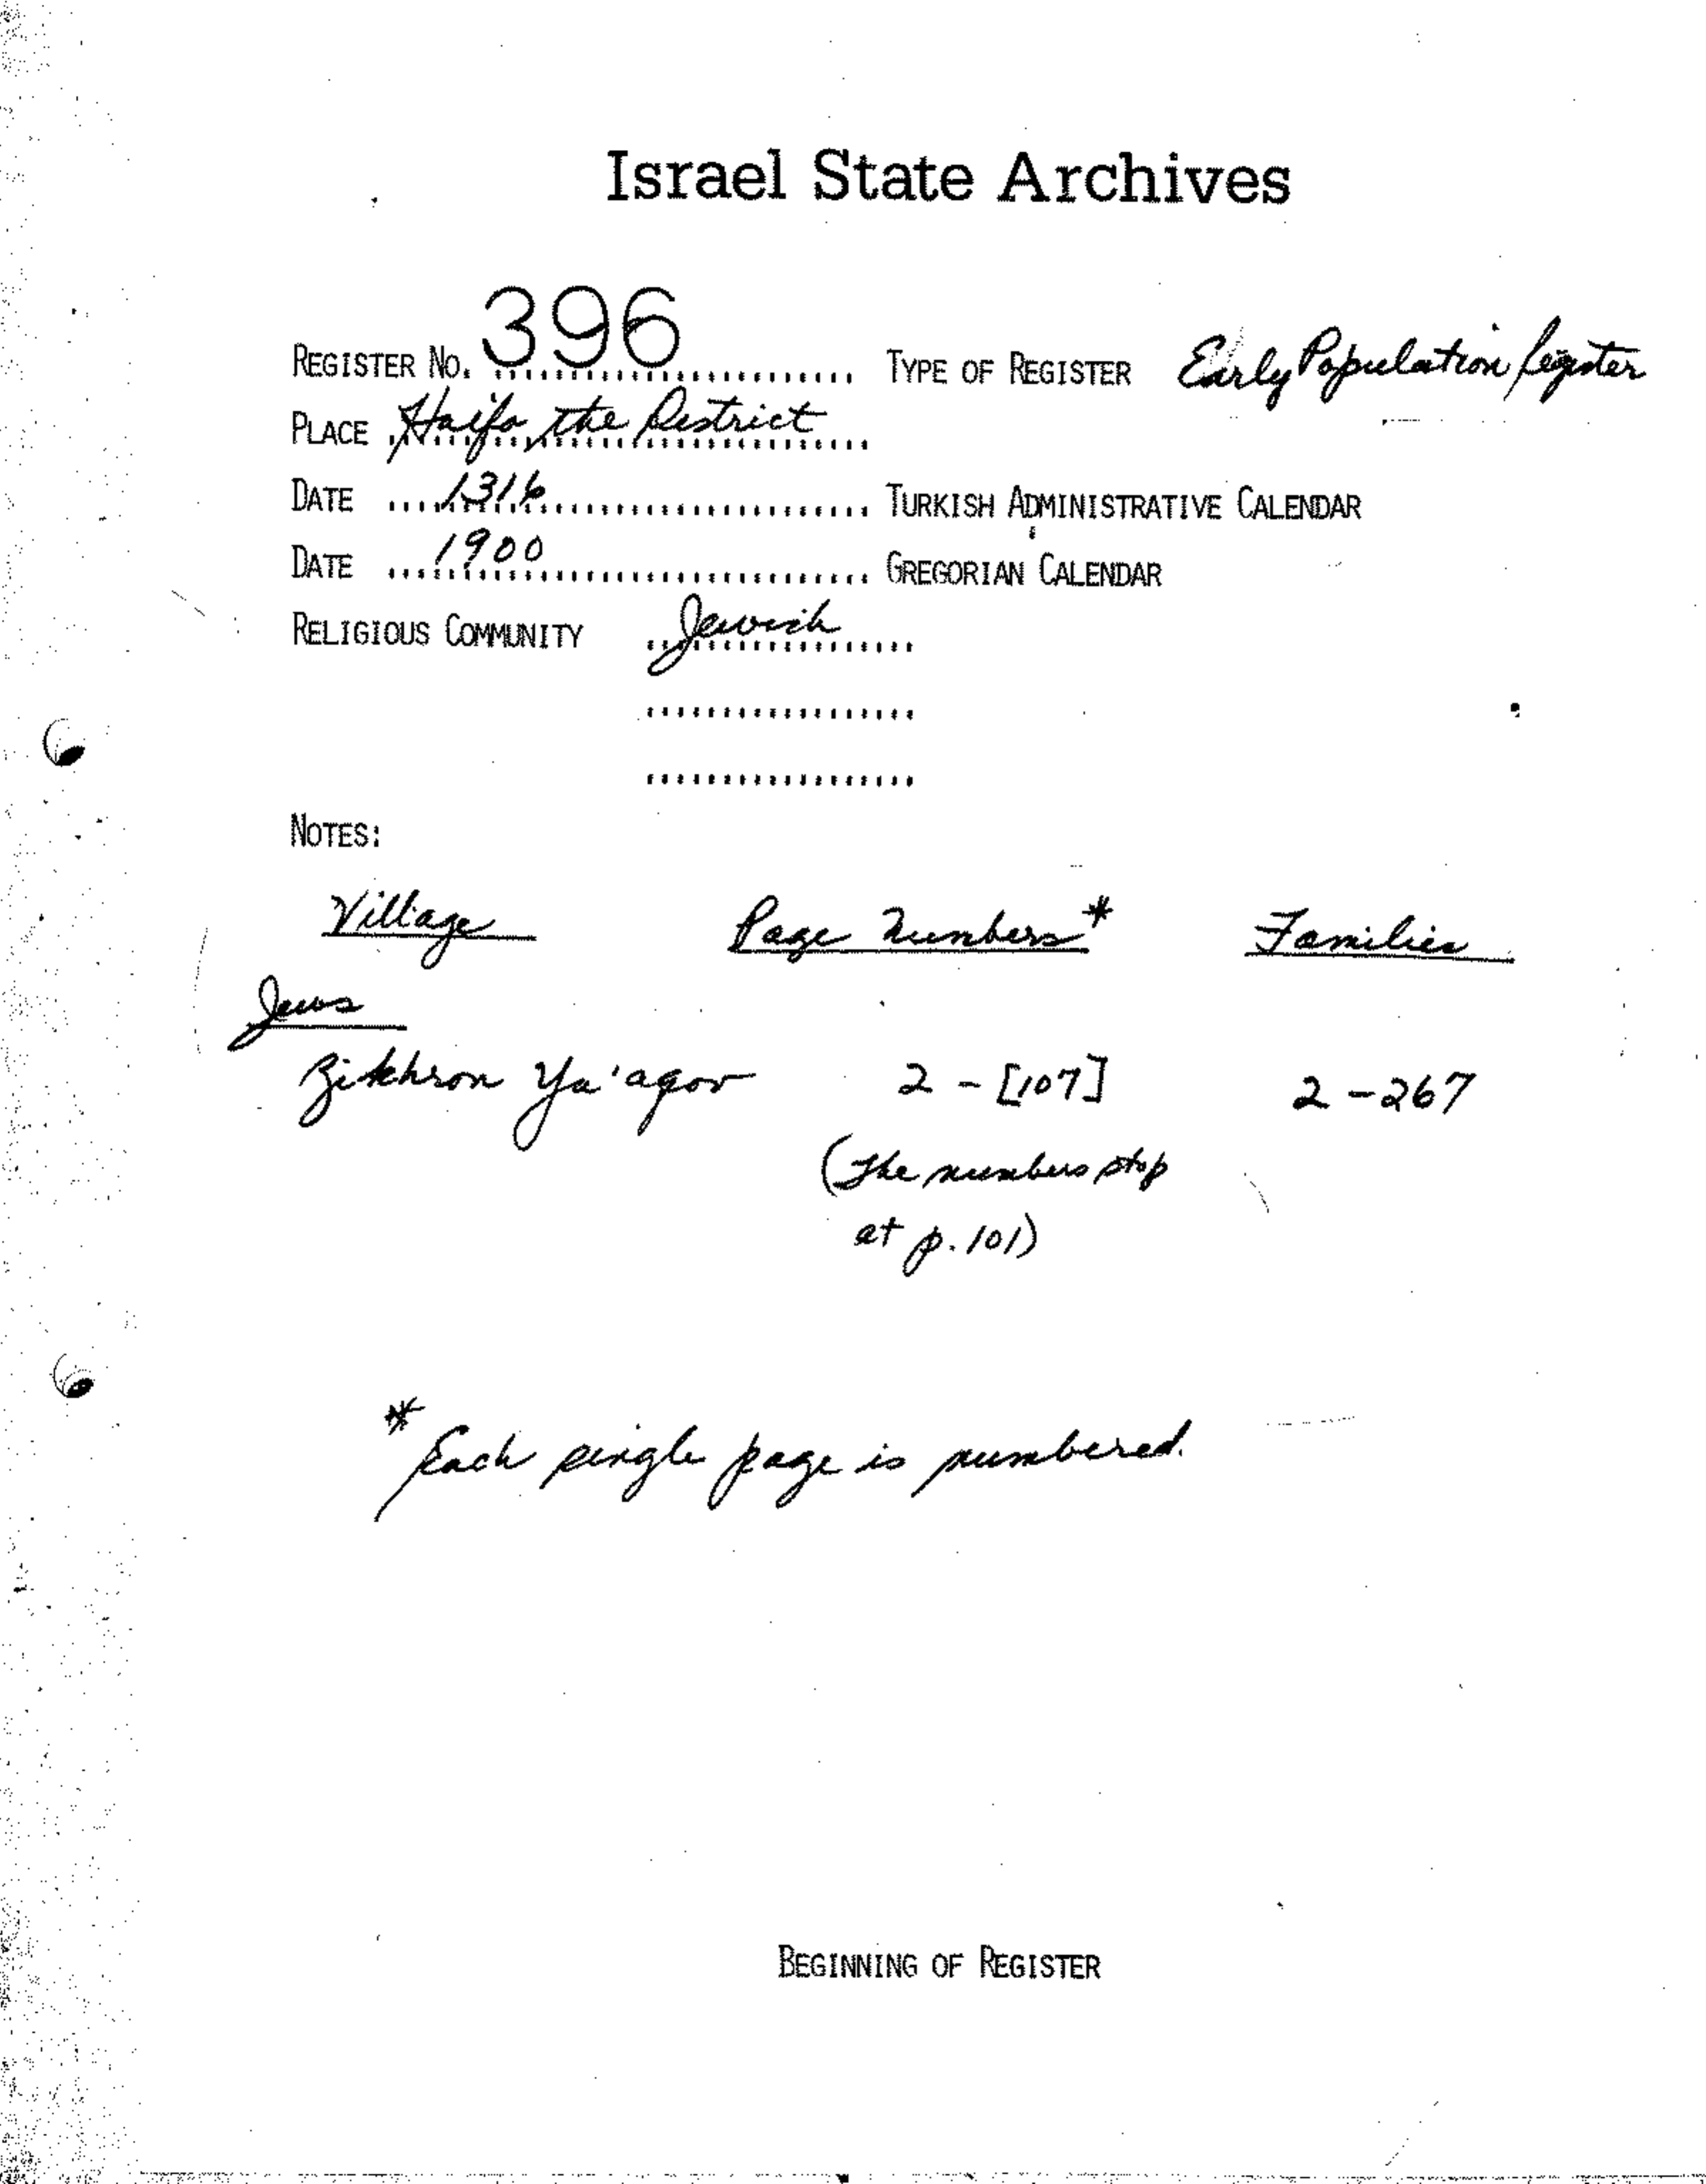 Israel State Archives
REGISTER NO. 396 TYPE OF REGISTER Early Population Register
PLACE Haifa, the District
DATE 1316 TURKISH ADMINISTRATIVE CALENDAR
DATE 1900 GREGORIAN CALENDAR
RELIGIOUS COMMUNITY Jewish
NOTES:
Village Page Numbers* Families
Jews
Zikhron Ya'aqov 2 - [107] 2 - 267
(The numbers stop
at p. 101)
* Each single page is numbered.
BEGINNING OF REGISTER